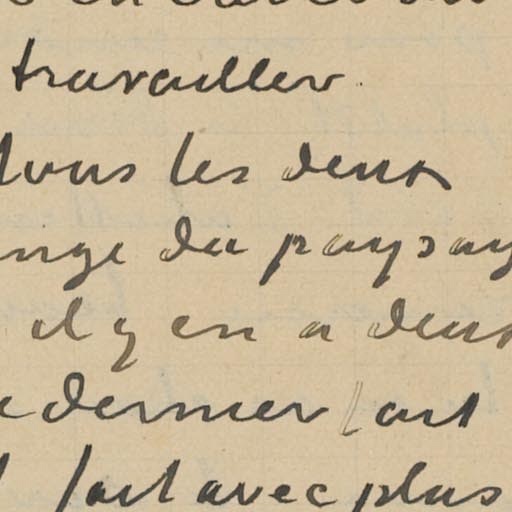 travailler.
tous les deux
ange du paysag
il y en a deux
dernier fait
fait avec plus